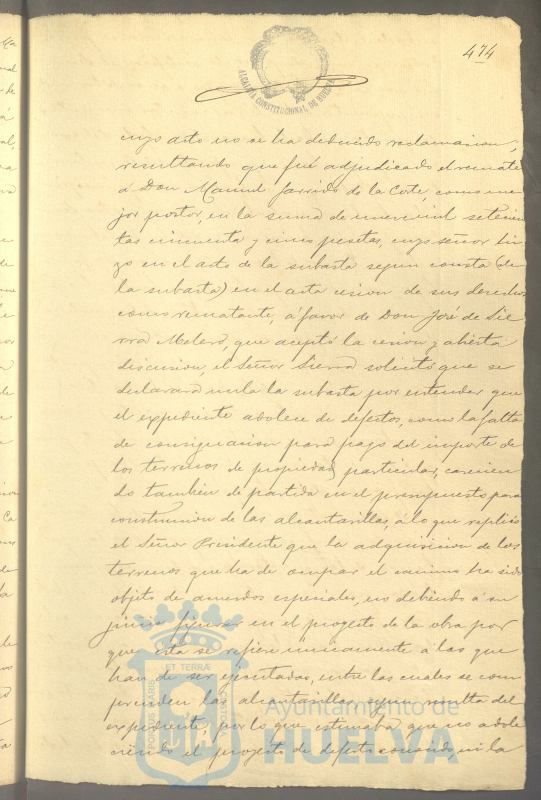 474
ALCALDIA CONSTITUCIONAL DE HUELVA
cuyo acto no se ha deducido reclamacion,
resultando que fué adjudicado el remate
á Don Manuel Garrido de la Corte, como me
jor postor, en la suma de nueve mil setecien
tas cincuenta y cinco pesetas, cuyo señor hi
zo en el acto de la subasta segun consta (de
la subasta) en el acta cesion de sus derechos
como rematante, á favor de Don José de Sie
rra Melero, que aceptó la cesion y abierta
discusion, el Señor Sierra solicitó que se
declarara nula la subasta por entender que
el expediente adolece de defectos, como la falta
de consignacion para pago del importe de
los terrenos de propiedad particular, carecien
do tambien de partida en el presupuesto para
construccion de las alcantarillas, á lo que replicó
el Señor Presidente que la adquisicion de los
terrenos que ha de ocupar el camino ha sido
objeto de acuerdos especiales, no debiendo á su
juicio figurar en el proyecto de la obra por
que esta se refiere únicamente á las que
han de ser ejecutadas, entre las cuales se com
prenden las alcantarillas, segun resulta del
expediente, por lo que estimaba que no adole
ciendo el proyecto de defecto ni la
PORTUS MARIS
ET TERRÆ
CUSTODIA
Ayuntamiento de
HUELVA